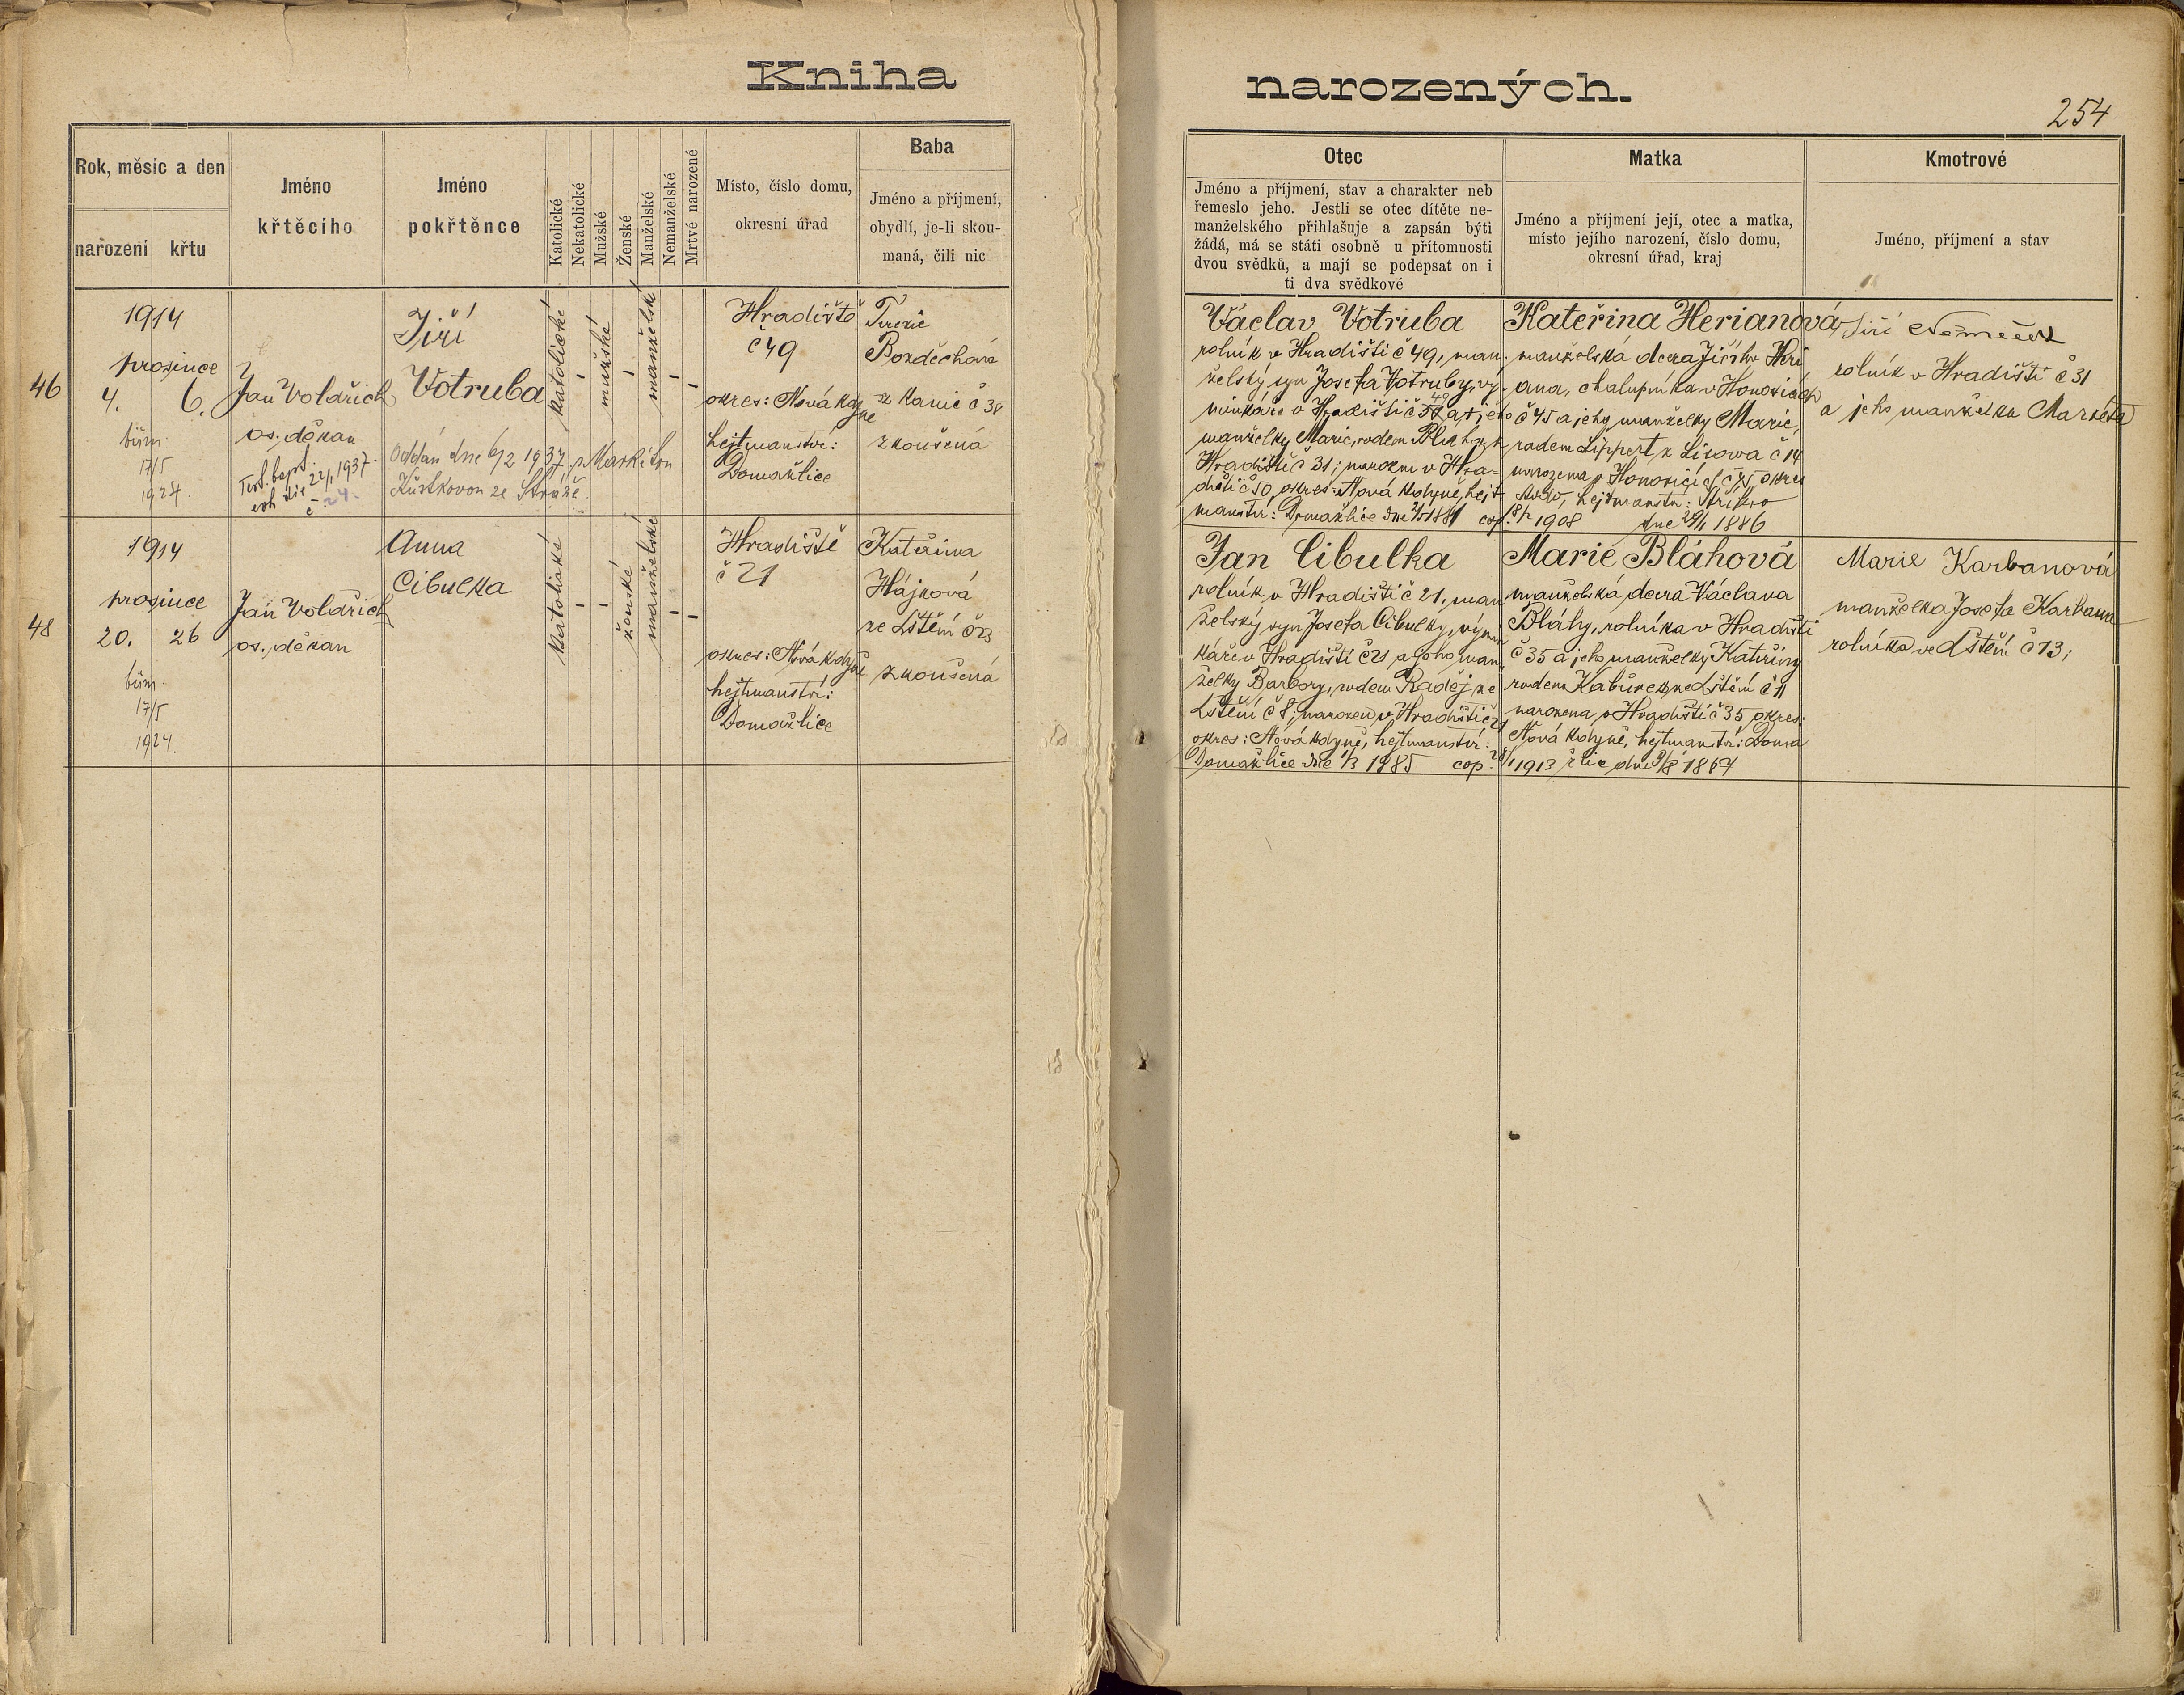 Kniha narozených.
254
Rok, měsíc a den
narození
křtu
Jméno
křtěcího
Jméno
pokřtěnce
Katolické
Nekatolické
Mužské
Ženské
Manželské
Nemanželské
Mrtvé narozené
Místo, číslo domu,
okresní úřad
Baba
Jméno a příjmení,
obydlí, je-li skou-
maná, čili nic
Otec
Jméno a příjmení, stav a charakter neb
řemeslo jeho. Jestli se otec dítěte ne-
manželského přihlašuje a zapsán býti
žádá, má se státi osobně u přítomnosti
dvou svědků, a mají se podepsat on i
ti dva svědkové
Matka
Jméno a příjmení její, otec a matka,
místo jejího narození, číslo domu,
okresní úřad, kraj
Kmotrové
Jméno, příjmení a stav
46
1914
prosince
4. 6.
biřm.
17/5
1924.
Jan Voldřich
os. děkan
Test. bapt.
1937
Jiří
Votruba
Oddán dne 6/2 1937 s Markétou
ze Stráže.
katolické
-
mužské
-
manželské
-
-
Hradiště
č 49
okres: Nová Kdy
ně
hejtmanství:
Domažlice
Terezie
Pozděchová
z Kanic č 38
zkoušená
Václav Votruba
rolník v Hradišti č 49, man-
želský syn Josefa Votruby, vý-
minkáře v Hradišti č 49 a jeho
manželky Marie, rodem Bláha z
Hradiště č 31; narozen v Hra-
dišti č 50, okres: Nová Kdyně, hejt-
manství: Domažlice dne 1881 cop. 1908
Kateřina Herianová
manželská dcera Jiřího Heri
ana, chalupníka v Honosicích
č 45 a jeho manželky Marie,
rodem Lippert z Lisowa č 14
narozena v Honosicích č 45 okres
Stod, hejtmanství: Stříbro
dne 29/1 1886
Jiří Němeček
rolník v Hradišti č 31
a jeho manželka Markéta
48
1914
prosince
20. 26
biřm.
17/5
1924.
Jan Voldřich
os. děkan
Anna
Cibulka
katolické
-
-
ženské
manželské
-
-
Hradiště
č 21
okres: Nová Kdyně
hejtmanství:
Domažlice
Kateřina
Hájková
ze Lštění č 23
zkoušená
Jan Cibulka
rolník v Hradišti č 21, man
želský syn Josefa Cibulky, výmin
káře v Hradišti č 21 a jeho man
želky Barbory, rodem Raděj ze
Lštění č 8, narozen v Hradišti č 21
okres: Nová Kdyně, hejtmanství:
Domažlice dne 1/3 1885 cop. 1913
Marie Bláhová
manželská dcera Václava
Bláhy, rolníka v Hradišti
č 35 a jeho manželky Kateřiny
rodem Kabourek ze Lštění č 11
narozena v Hradišti č 35 okres:
Nová Kdyně, hejtmanství: Doma
žlice dne
Marie Karbanová
manželka Josefa Karbana
rolníka ve Lštění č 13;